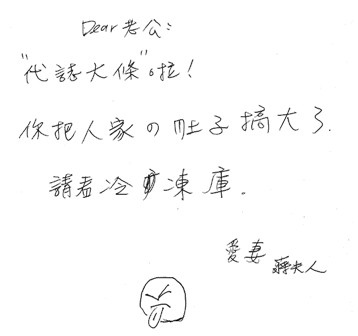 Dear 老公：
"代誌大條"啦！
你把人家の肚子搞大了.
請看冷凍庫.
愛妻 蔣夫人